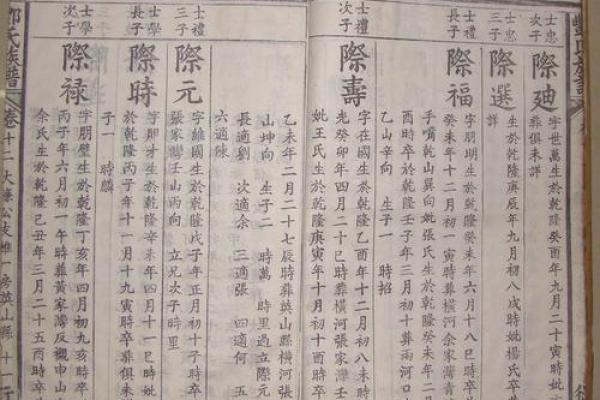 士忠
次子
際廸
字世萬生於乾隆癸酉年九月二十寅時
葬俱未詳
士忠
三子
際選
詳
生於乾隆庚辰年九月初八戌時姚楊氏卒葬
士禮
長子
際福
字朋明生於乾隆癸未年六月十八巳時卒
癸未年十二月初一寅時葬橫河余家灣青
手嘴乾山巽向妣張氏生於乾隆癸未年二
酉時卒於乾隆壬子年三月初十葬兩河口
乙山辛向 生子一 時招
士禮
次子
際壽
字在國生於乾隆乙酉年十二月初八未時
光癸卯年四月二十巳時葬橫河張家灣壬
妣王氏生於乾隆庚寅年十月初
乙未年二月二十七辰時葬英山縣橫河張
山坤向 生子二 時萬 時里過立際元
長適劉 次適余 三適張 四適何 五
六適陳
士禮
三子
際元
字維國生於乾隆戊子年正月初十子時卒
張家灣壬山丙向 立兄次子時里
士學
長子
際時
字即才生於乾隆辛未年四月十一巳時妣
於乾隆丙子年十一月十九寅時卒葬俱未
子一 時麟
士學
次子
際禄
字朋璧生於乾隆丁亥年四月初九亥時卒
丙子年六月初一午時葬黃家灣反襯申山
余氏生於乾隆己丑年三月二十五酉時卒
氏族譜
卷十二 大
公支雄一房英山縣 十一